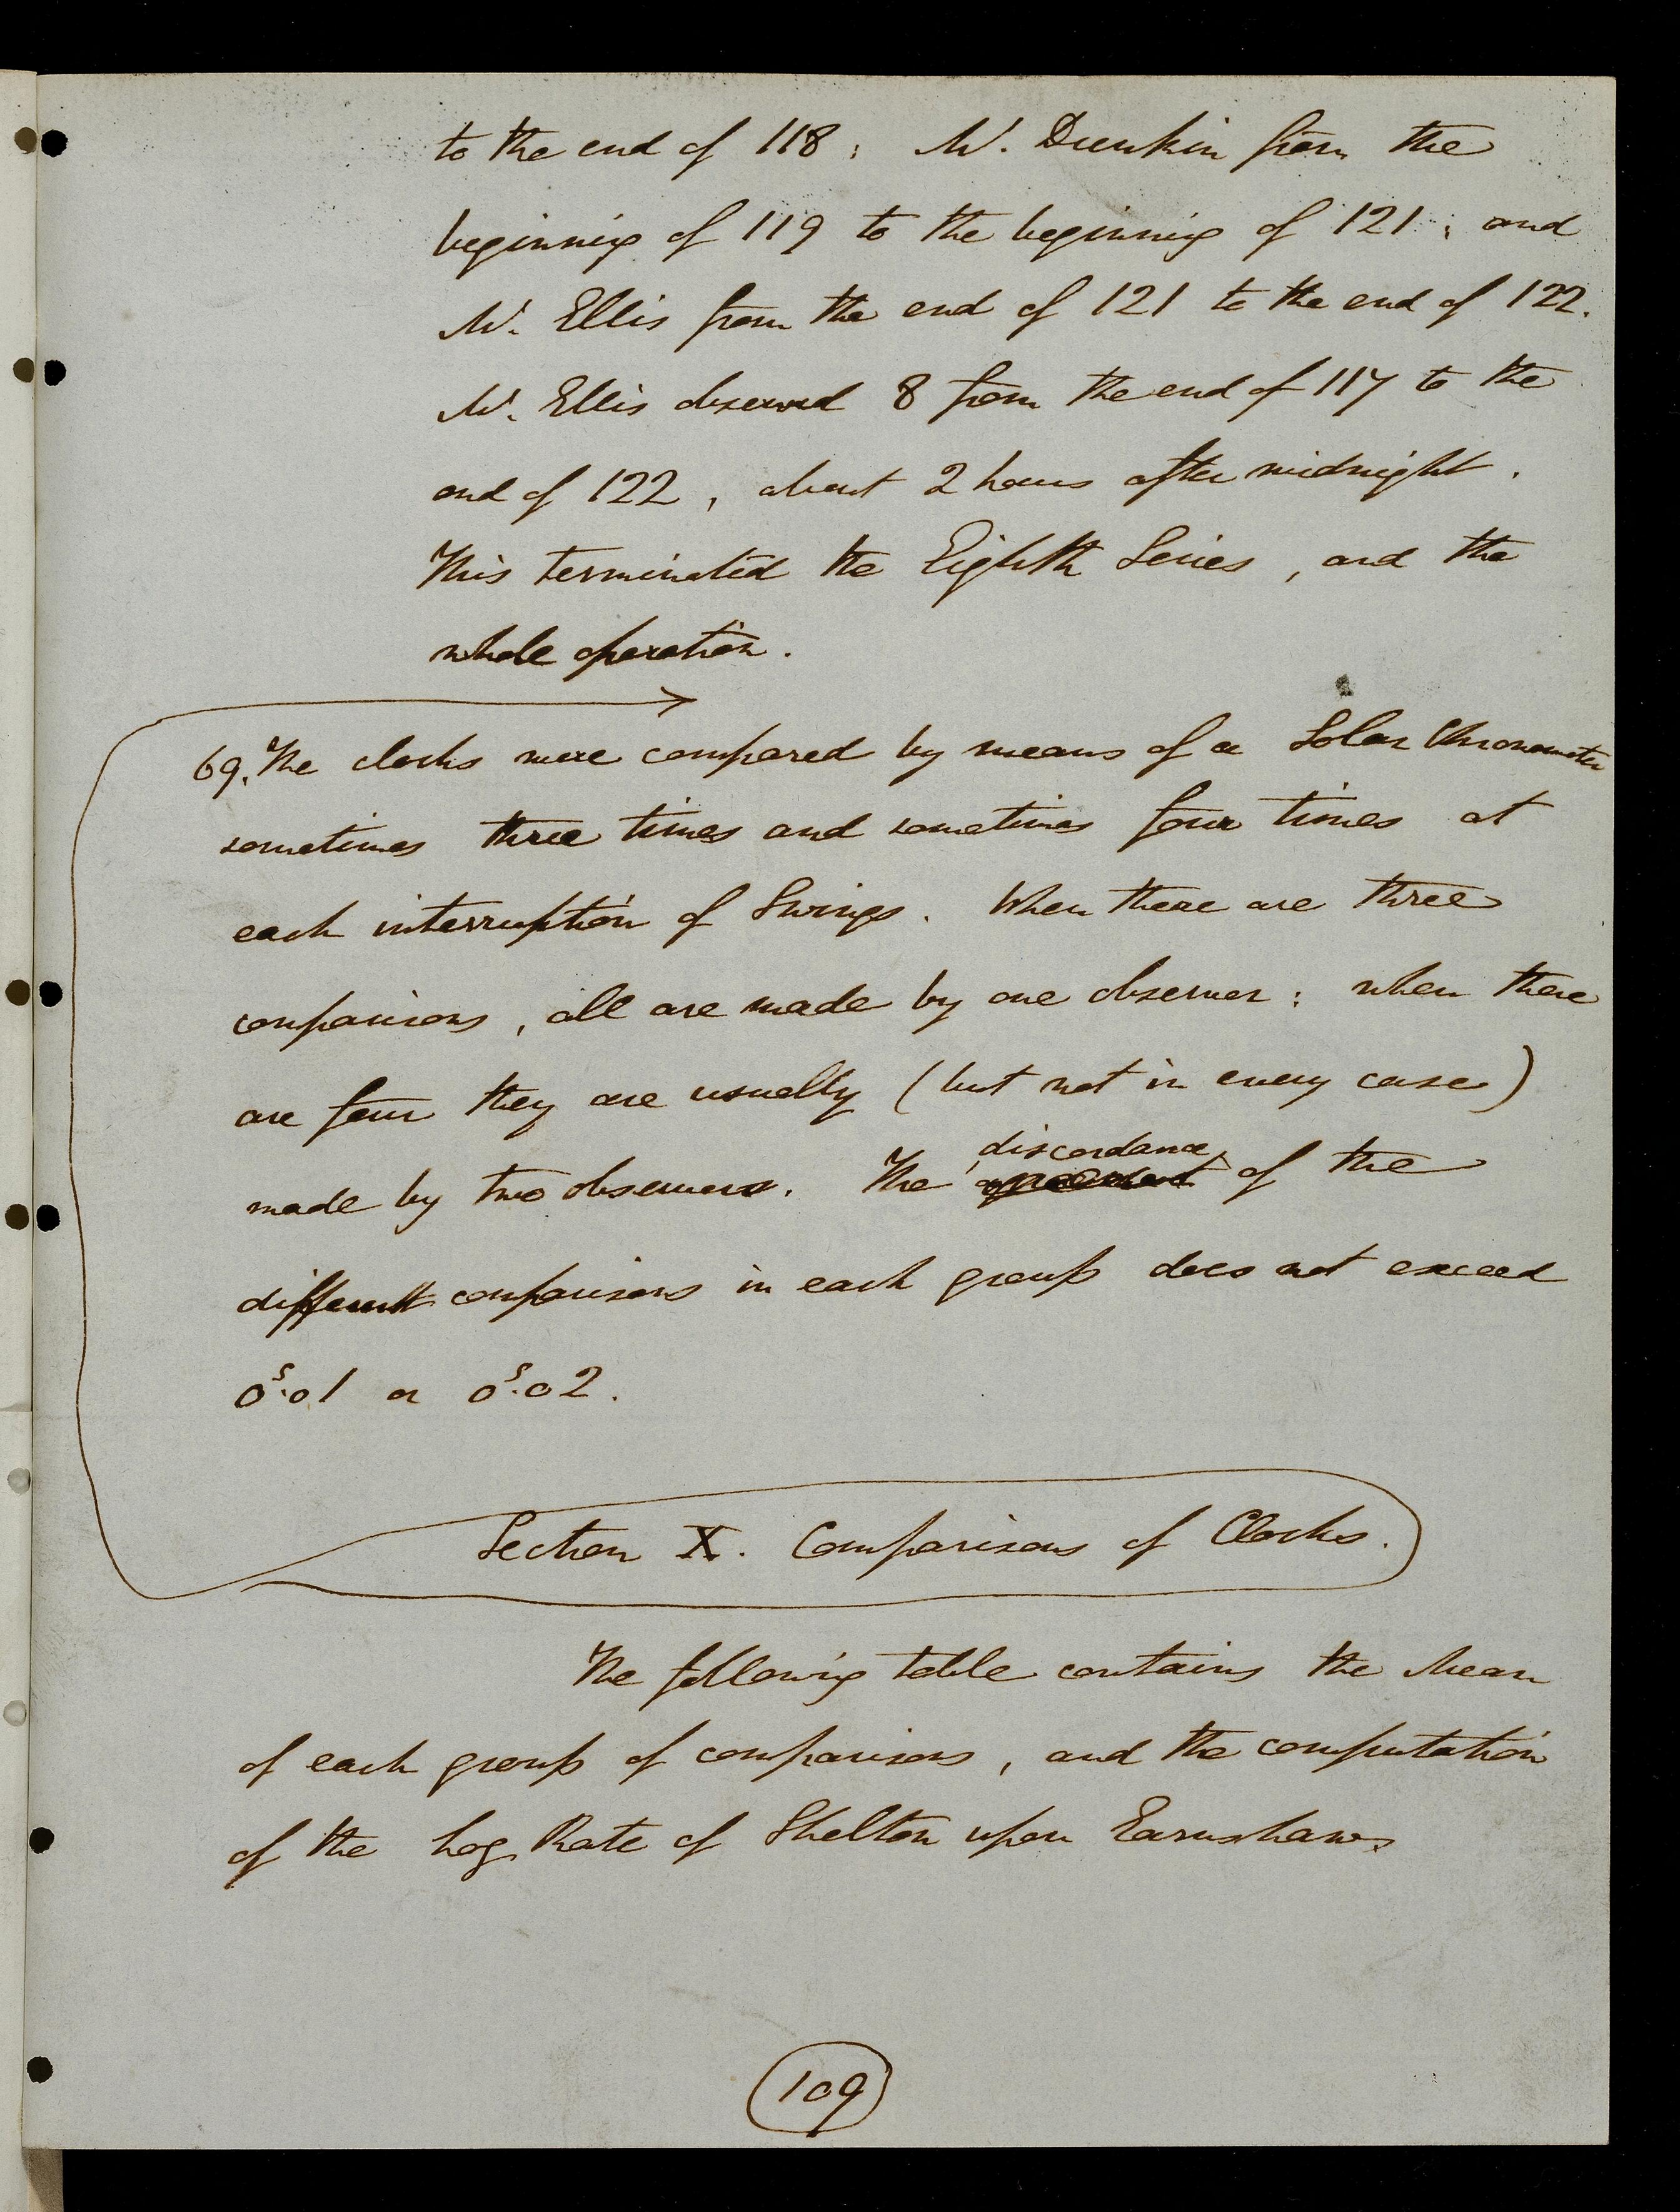 to the end of 118 ; Mr. Dunkin from the
beginning of 119 to the beginning of 121 ; and
Mr. Ellis from the end of 121 to the end of 122.
Mr. Ellis observed 8 from the end of 117 to the
end of 122 , about 2 hours after midnight .
This terminated the Eighth Series , and the
whole operation .
69. The clocks were compared by means of a Solar Chronometer
sometimes three times and sometimes four times at
each interruption of Swings . When there are three
comparisons , all are made by one observer : when there
are four they are usually ( but not in every case )
made by two observers . The discordance of the
different comparisons in each group does not exceed
0ˢ.01 or 0ˢ.02 .
Section X . Comparisons of Clocks .
The following table contains the Mean
of each group of comparisons , and the computation
of the Log. Rate of Shelton upon Earnshaw.
109